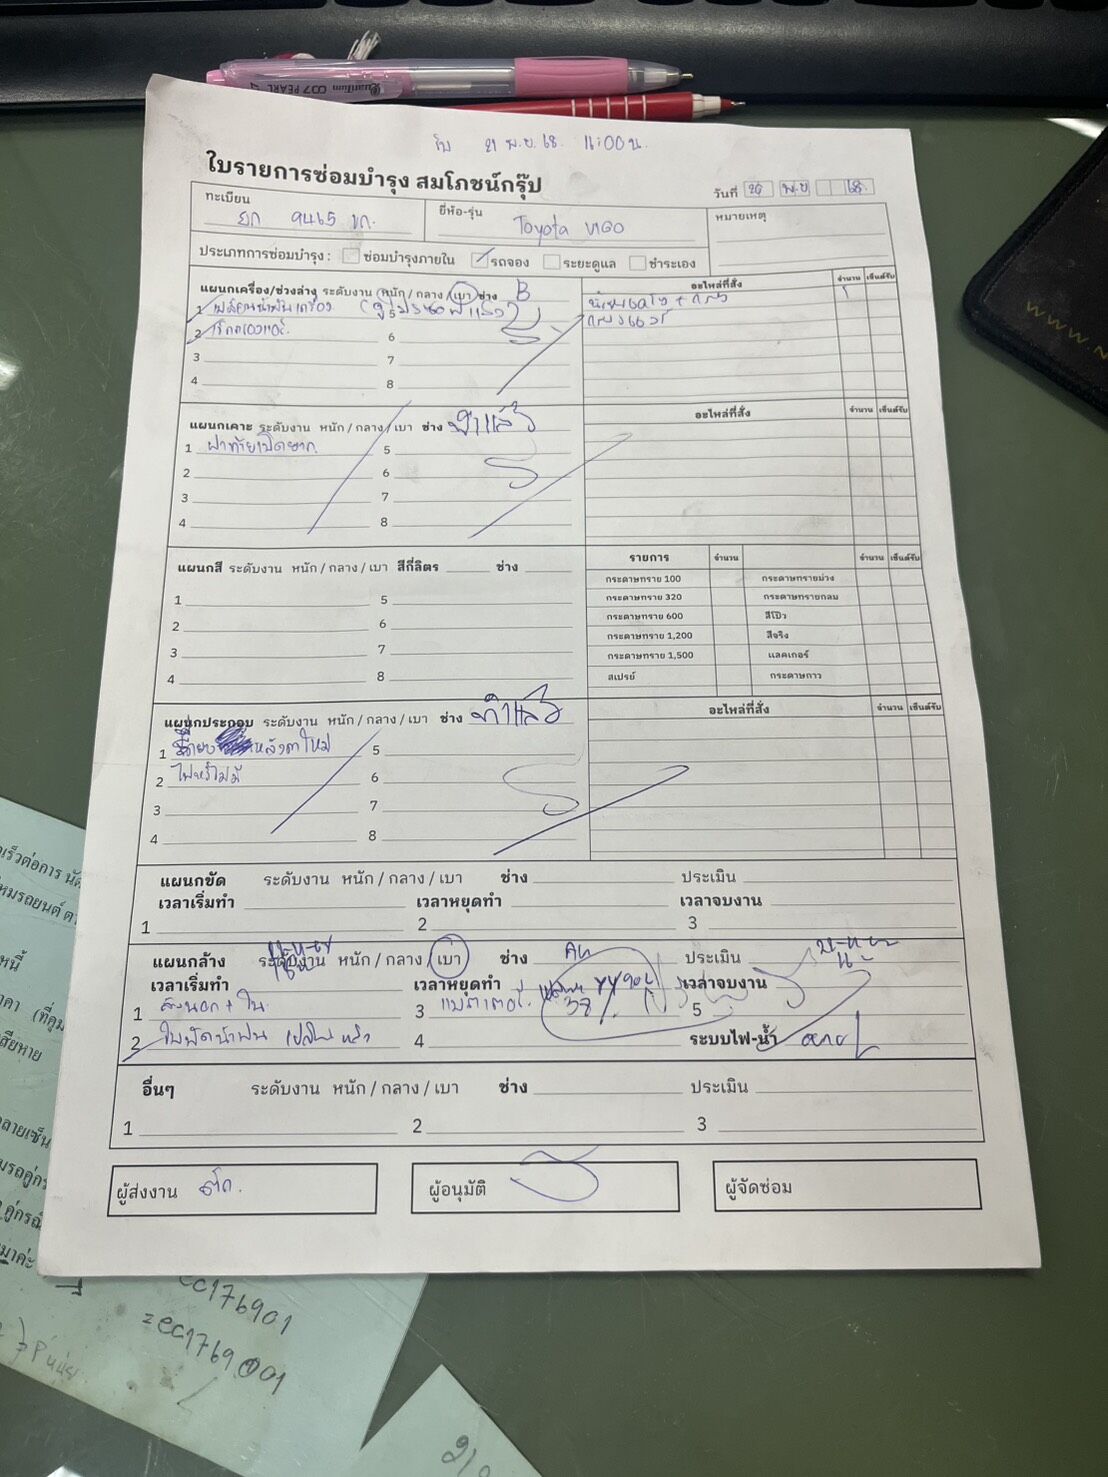 รับ 21 พ.ย. 68. 11:00 น.
ใบรายการซ่อมบำรุง สมโภชน์กรุ๊ป
วันที่ 20 พ.ย 68.
ทะเบียน 9465 ขก.
ยี่ห้อ-รุ่น Toyota VIGO
หมายเหตุ
ประเภทการซ่อมบำรุง : ซ่อมบำรุงภายใน รถจอง ระยะดูแล ชำระเอง
แผนกเครื่อง/ช่วงล่าง ระดับงาน หนัก / กลาง / เบา ช่าง B
อะไหล่ที่สั่ง จำนวน เซ็นต์รับ
1 เปลี่ยนน้ำมันเครื่อง 5
2 6
3 7
4 8
แผนกเคาะ ระดับงาน หนัก / กลาง / เบา ช่าง ทำแล้ว
อะไหล่ที่สั่ง จำนวน เซ็นต์รับ
1 ฝาท้ายเปิดยาก 5
2 6
3 7
4 8
แผนกสี ระดับงาน หนัก / กลาง / เบา สีกี่ลิตร ช่าง
รายการ จำนวน จำนวน เซ็นต์รับ
1 5
2 6
3 7
4 8
กระดาษทราย 100 กระดาษทรายม่วง
กระดาษทราย 320 กระดาษทรายกลม
กระดาษทราย 600 สีโป๊ว
กระดาษทราย 1,200 สีจริง
กระดาษทราย 1,500 แลคเกอร์
สเปรย์ กระดาษกาว
แผนกประกอบ ระดับงาน หนัก / กลาง / เบา ช่าง ทำแล้ว
อะไหล่ที่สั่ง จำนวน เซ็นต์รับ
1 หลังคาใหม่ 5
2 ไฟหรี่ไม่มี 6
3 7
4 8
แผนกขัด ระดับงาน หนัก / กลาง / เบา ช่าง ประเมิน
เวลาเริ่มทำ เวลาหยุดทำ เวลาจบงาน
1 2 3
แผนกล้าง ระดับงาน หนัก / กลาง / เบา ช่าง ประเมิน
เวลาเริ่มทำ เวลาหยุดทำ เวลาจบงาน
1 ล้างนอก + ใน 3 แบตเตอรี่ 38% 5
2 ใบปัดน้ำฝน 4 ระบบไฟ-น้ำ
อื่นๆ ระดับงาน หนัก / กลาง / เบา ช่าง ประเมิน
1 2 3
ผู้ส่งงาน
ผู้อนุมัติ
ผู้จัดซ่อม
ec176901
=ec1769001